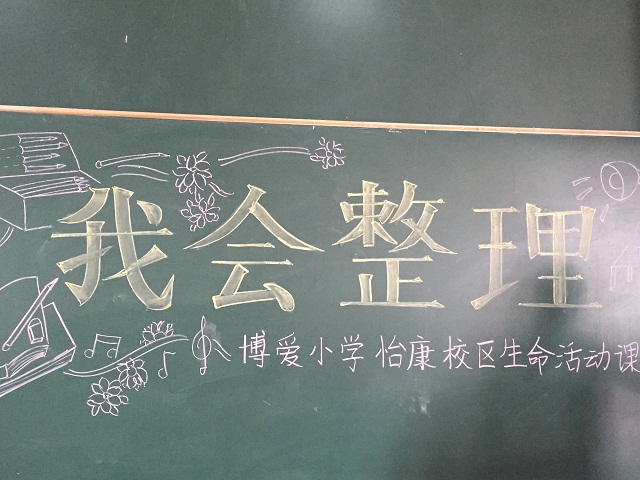 我会整理
博爱小学怡康校区生命活动课